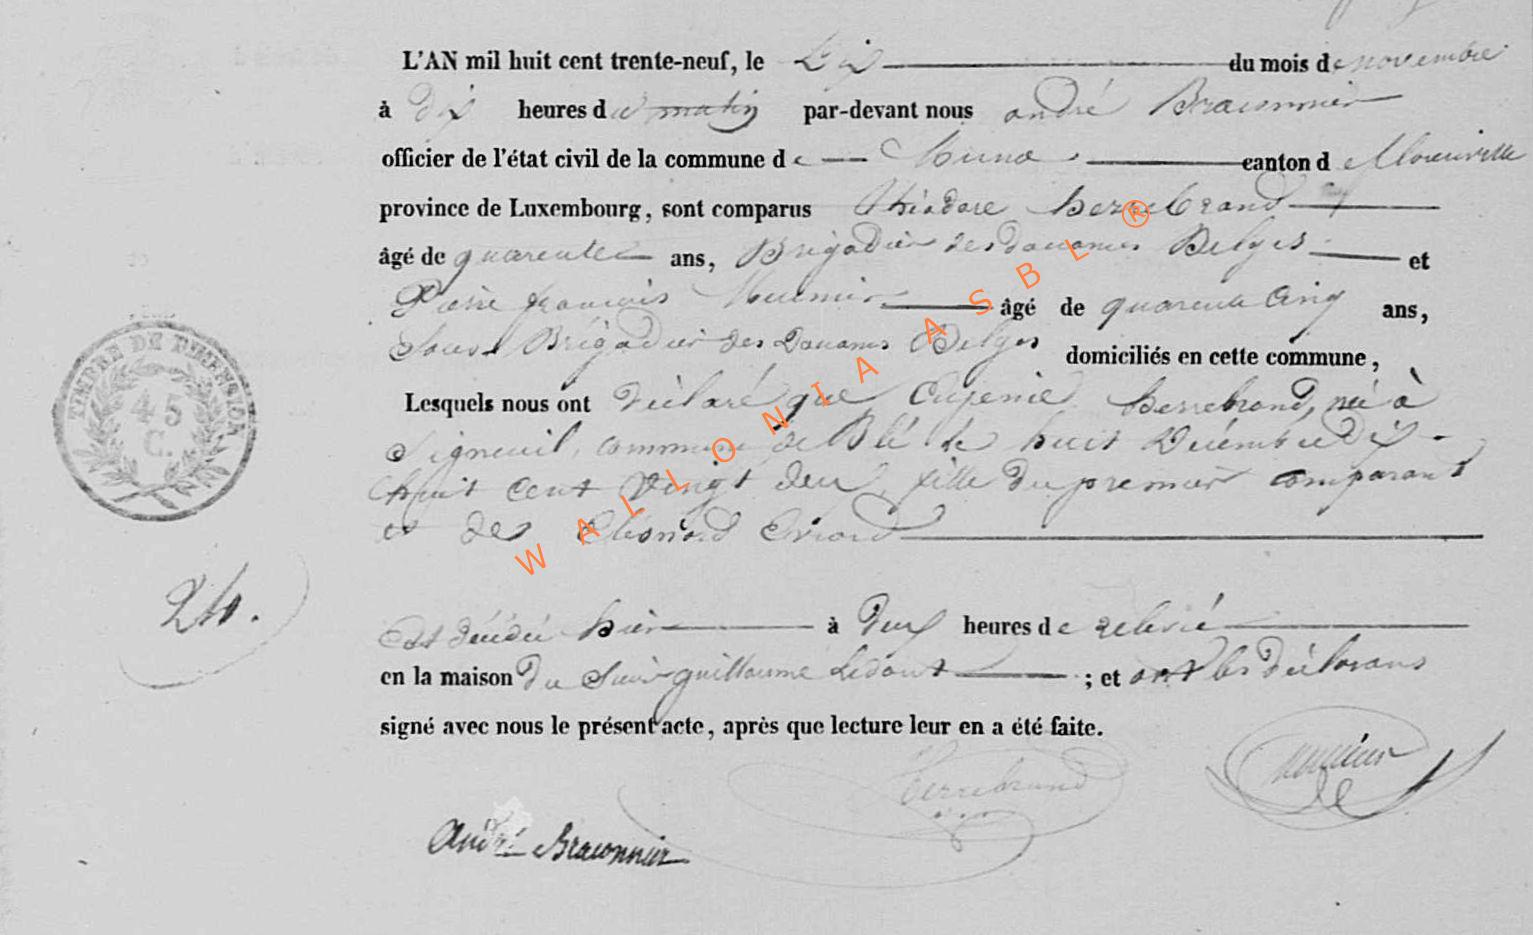 L'AN mil huit cent trente-neuf, le Dix du mois de novembre
à dix heures du matin par-devant nous andré Braconnier
officier de l'état civil de la commune de Muno canton de Florenville
province de Luxembourg, sont comparus Théodore Herrebrand
âgé de quarente ans, Brigadier des douanes Belges et
Pierre françois Meunier âgé de quarente Cinq ans,
Sous Brigadier des Douanes Belges domiciliés en cette commune,
Lesquels nous ont déclaré que Eugenie Herrebrand, née à
Signeuil, commune de Blé le huit Décembre Dix
huit Cent Vingt deux, fille du premier comparant
et de Evrard
24.
Est décédée hier à deux heures de relevée
en la maison du Sieur guillaume Ledoux ; et ont les déclarans
signé avec nous le présent acte, après que lecture leur en a été faite.
Herrebrand Meunier
André Braconnier
TIMBRE DE DIMENSION
45
C.
WALLONIA ASBL ®